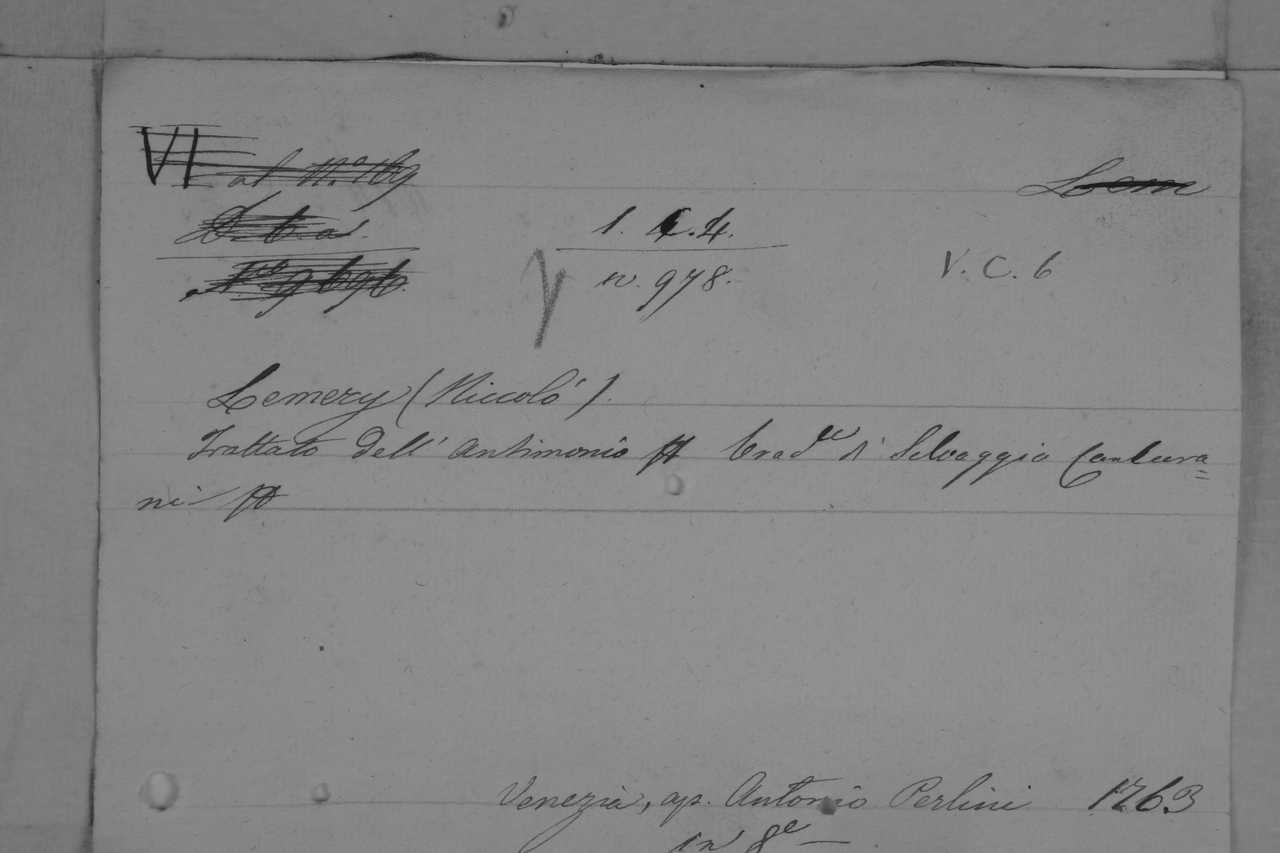 VI al N.º 169
Lem
1. C. 4.
V. C. 6
n. 978.
Lemery (Niccolò).
Trattato dell' Antimonio // Trad.ne di Selvaggio Cantura=
ni //
Venezia, ap. Antonio Perlini 1763
in 8.º —